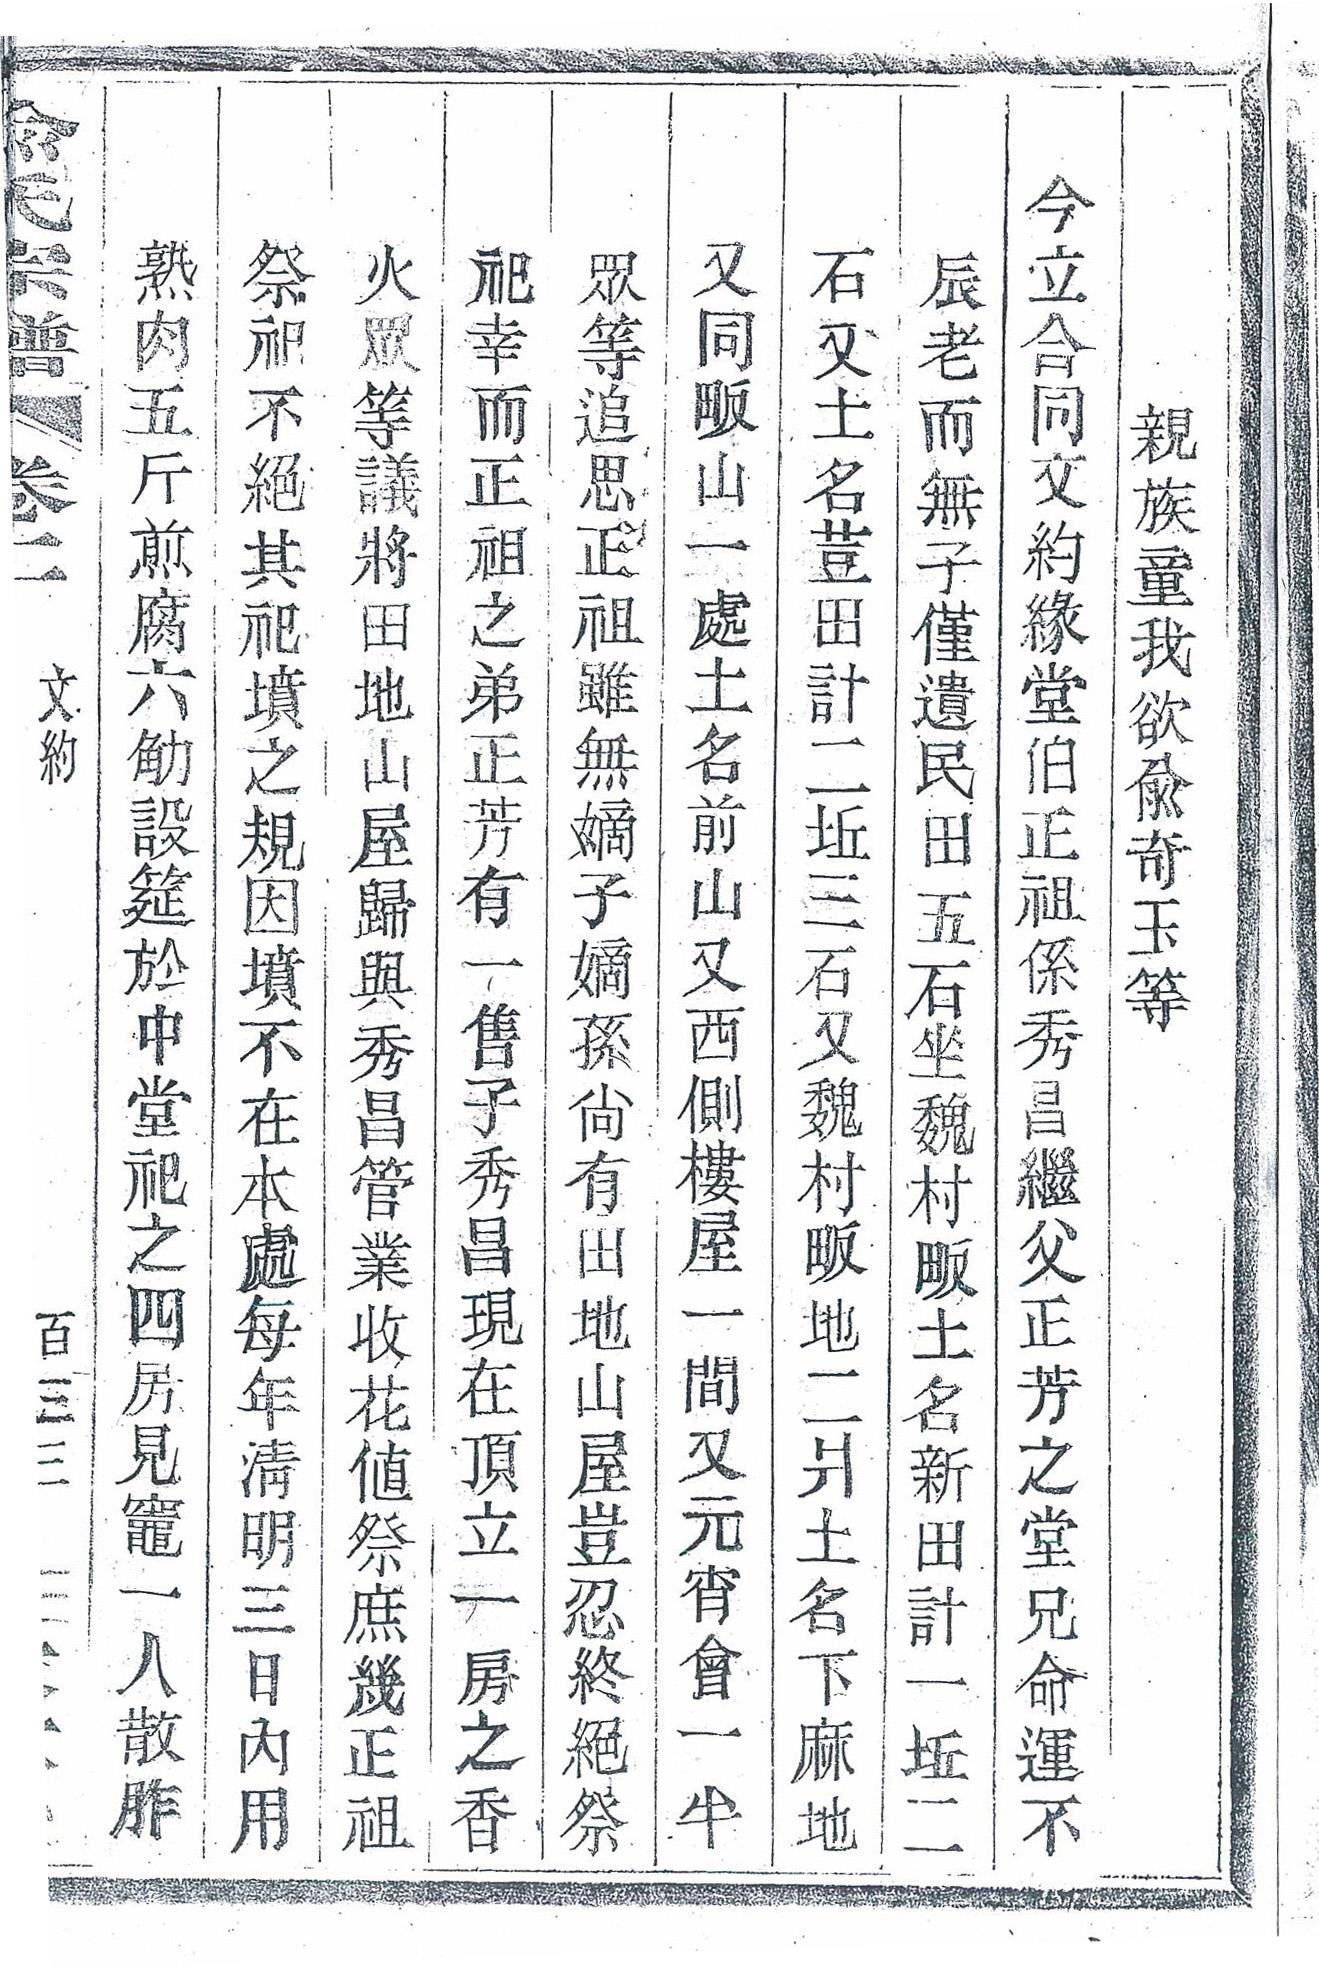 親族童我欲俞奇玉等
今立合同文約緣堂伯正祖係秀昌繼父正芳之堂兄命運不
辰老而無子僅遺民田五石坐魏村畈土名新田計一坵二
石又土名荳田計二坵三石又魏村畈地二爿土名下麻地
又同畈山一處土名前山又西側樓屋一間又元宵會一半
眾等追思正祖雖無嫡子嫡孫尙有田地山屋豈忍終絕祭
祀幸而正祖之弟正芳有一售子秀昌現在頂立一房之香
火眾等議將田地山屋歸與秀昌管業收花値祭庶幾正祖
祭祀不絕其祀墳之規因墳不在本處每年淸明三日內用
熟肉五斤煎腐六觔設筵於中堂祀之四房見竈一人散胙
俞氏宗譜 卷二 文約 百三三